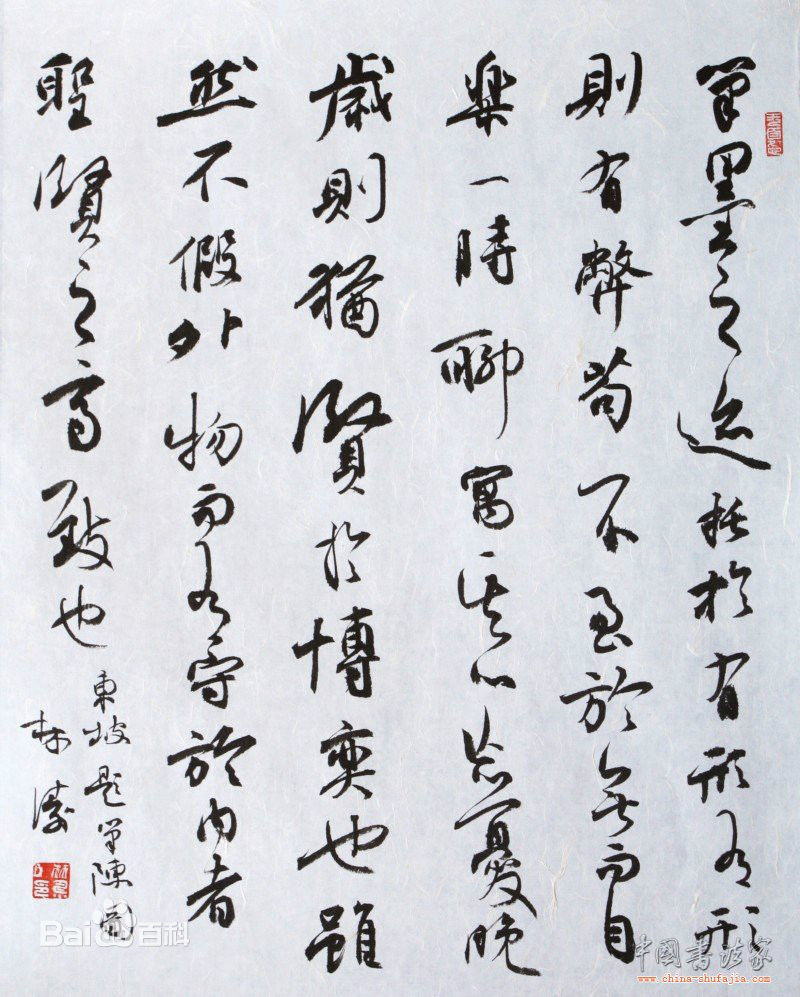 筆墨之迹托於有形有形
則有弊苟不至於無而自
樂一時聊寓其心忘憂晚
歲則猶賢於博奕也雖
然不假外物而有守於内者
聖賢之高致也
東坡題筆陣圖
林
Bai百科
中國書法家
www.china-shufajia.com